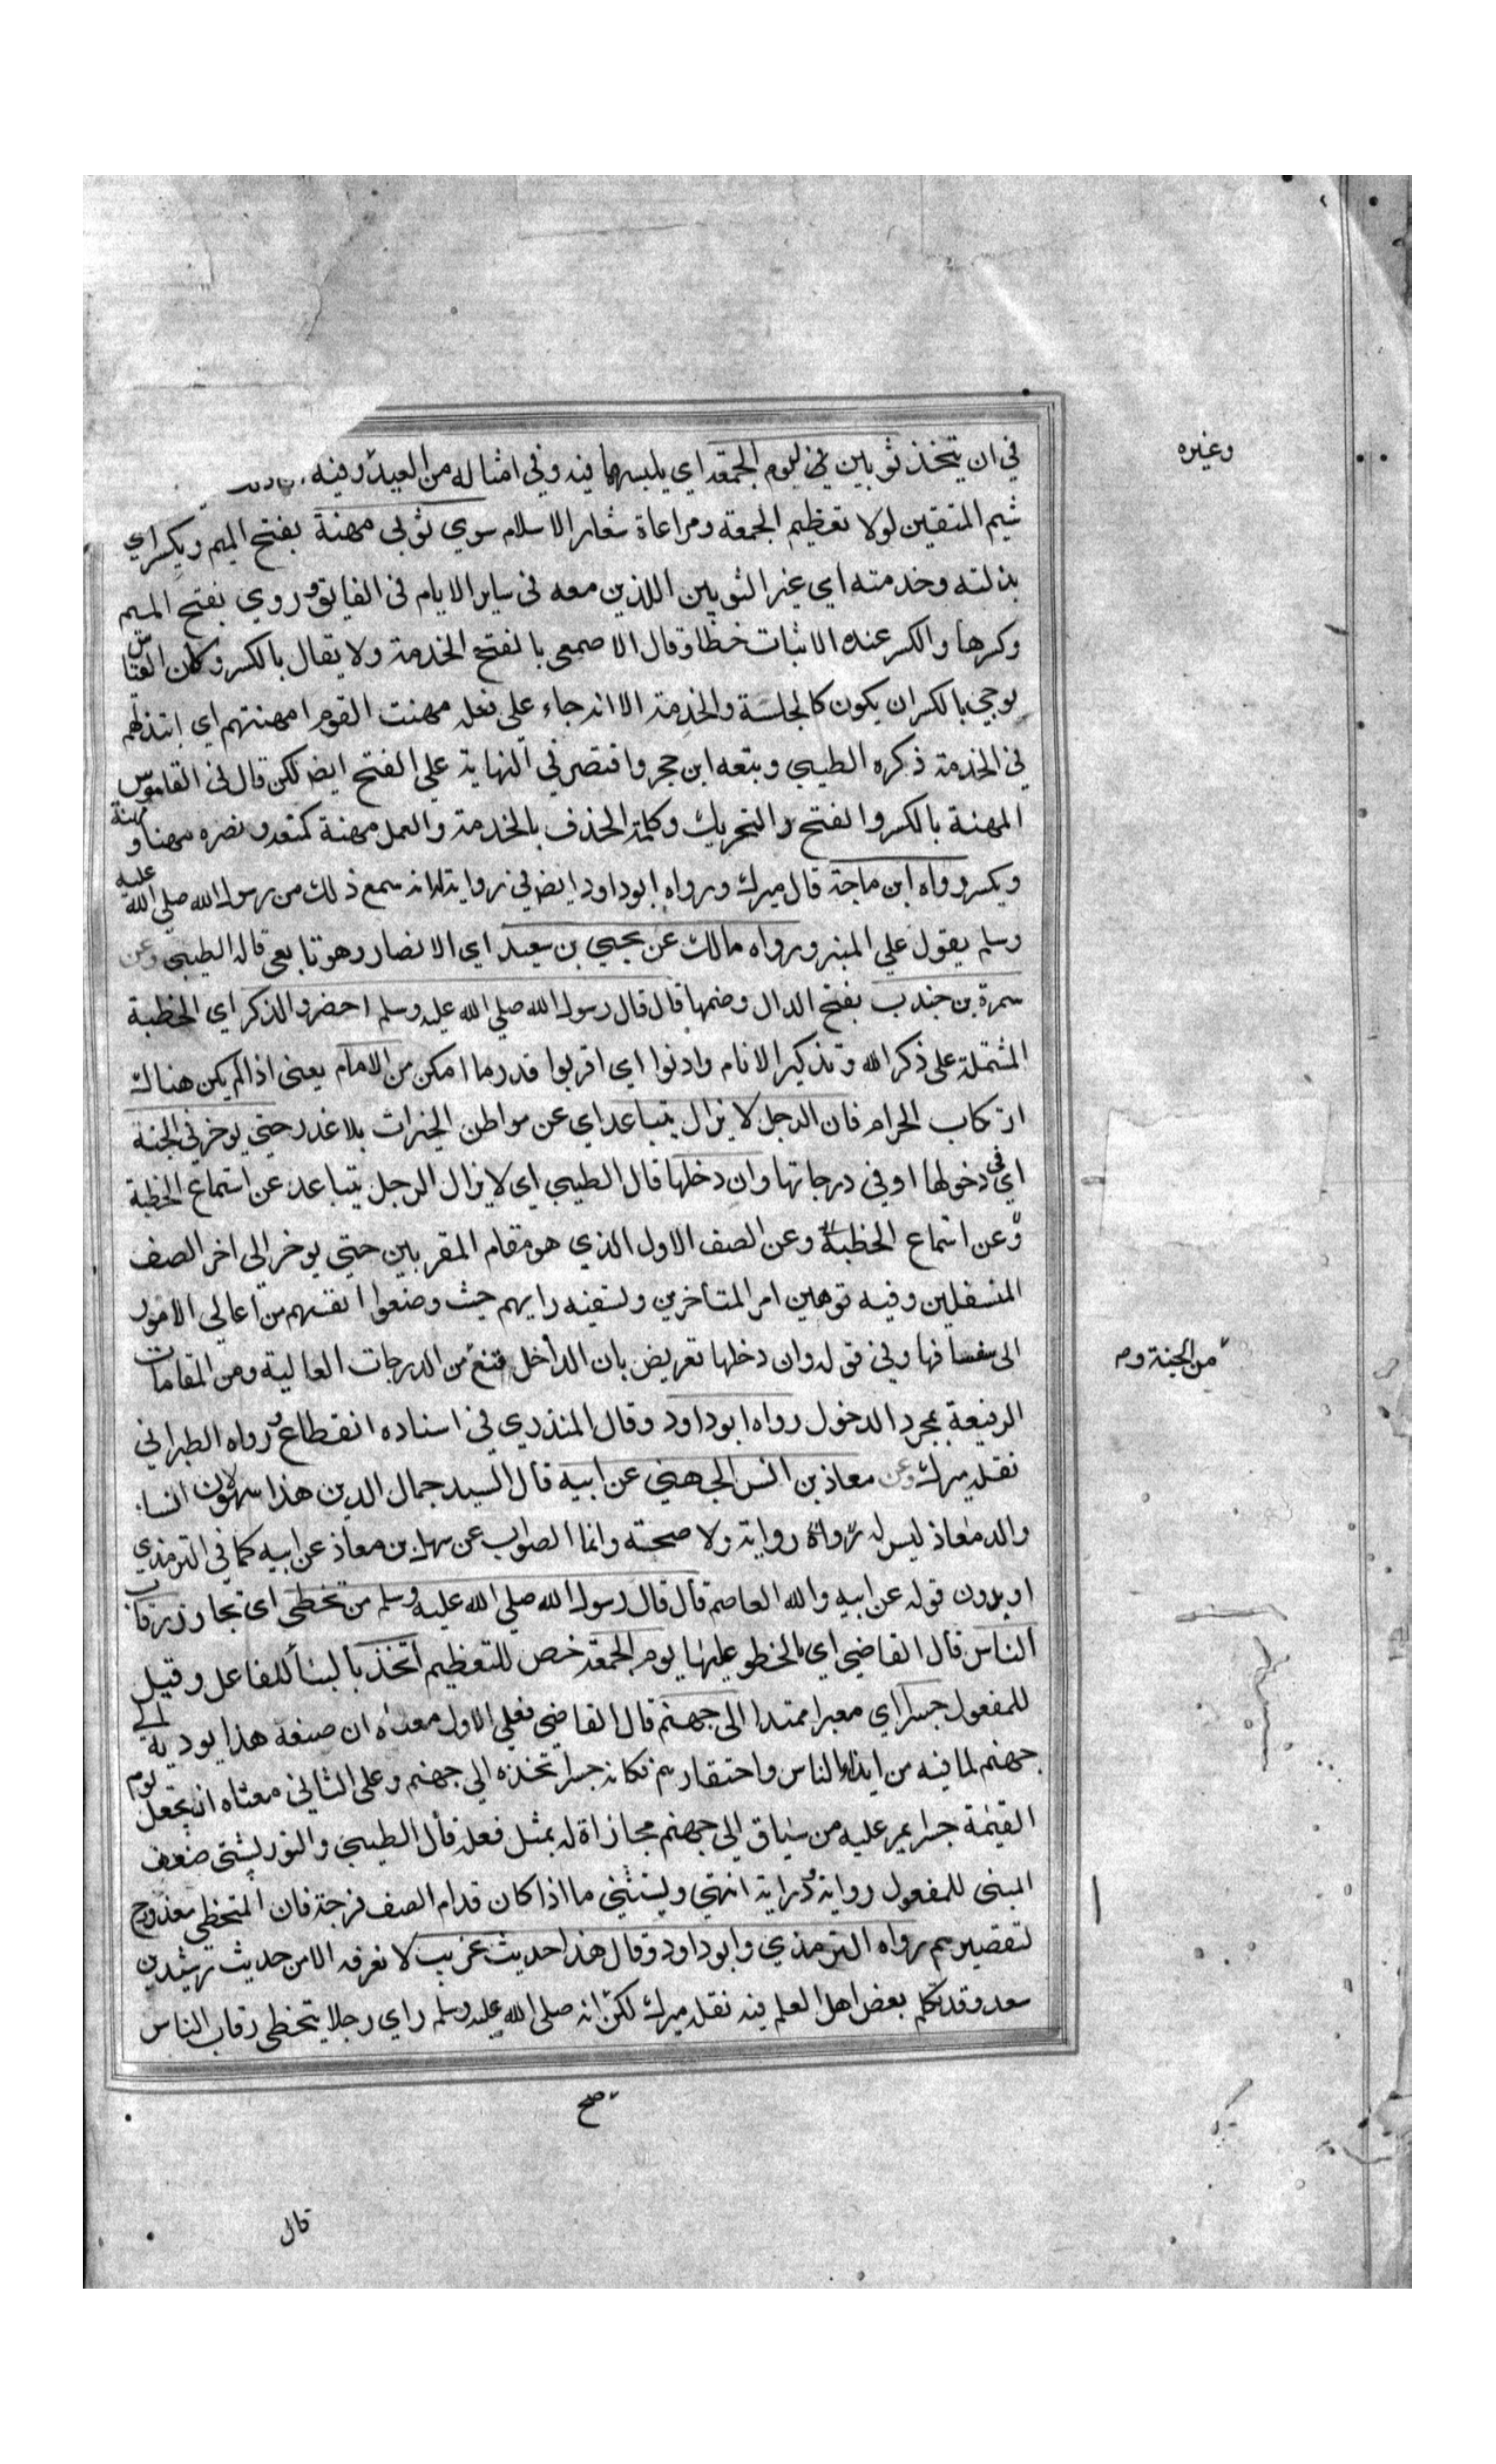 في ان يتخذ ثوبين ليوم الجمعة اي يلبسهما فيه وفي امثاله من العيد وفيه
وغيره
شيم المتقين لولا تعظيم الجمعة ومراعاة شعار الاسلام سوي ثوبي مهنة بفتح الميم ويكسر اي
بذلته وخدمته اي غير الثوبين اللذين معه في ساير الايام في الفايق وروي بفتح الميم
وكسرها والكسر عند الاثبات خطا وقال الاصمعي بالفتح الخدمة ولا يقال بالكسر وكان القياس
يوجي بالكسر ان يكون كالجلسة والخدمة الا انه جاء علي فعلة مهنت القوم امهنتهم اي ابتذلتهم
في الخدمة ذكره الطيبي وبتعه ابن حجر واقتصر في النهاية علي الفتح ايض لكن قال في القاموس
المهنة بالكسر والفتح والتحريك وككلمة الحذف بالخدمة والعمل مهنة كمنعه ونصره مهنا ومهنة
ويكسر رواه ابن ماجة قال ميرك ورواه ابو داود ايض في رواية له انه سمع ذلك من رسول الله صلي الله عليه
وسلم يقول علي المنبر ورواه مالك عن يحيي بن سعيد اي الانصار وهو تابعي قاله الطيبي وعن
سمرة بن جندب بفتح الدال وضمها قال قال رسول الله صلي الله عليه وسلم احضروا الذكر اي الخطبة
المشتملة علي ذكر الله وتذكير الانام وادنوا اي اقربوا قدر ما امكن من الامام يعني اذا لم يكن هناك
ارتكاب الحرام فان الرجل لا يزال يتباعد اي عن مواطن الخيرات بلا عذر حتي يوخر في الجنة
اي في دخولها او في درجاتها وان دخلها قال الطيبي اي لا يزال الرجل يتباعد عن استماع الخطبة
وعن استماع الخطبة وعن الصف الاول الذي هو مقام المقربين حتي يوخر الي اخر الصف
المتسفلين وفيه توهين امر المتاخرين وتسفيه رايهم حيث وضعوا انفسهم من اعالي الامور
الي سفسافها وفي قوله وان دخلها تعريض بان الداخل قنع من الدرجات العالية ومن المقامات
من الجنة وم
الرفيعة بمجرد الدخول رواه ابو داود وقال المنذري في اسناده انقطاع ورواه الطبراني
نقله ميرك وعن معاذ بن انس الجهني عن ابيه قال السيد جمال الدين هذا سهو لان انسا
والد معاذ ليس له رواية ولا صحبة وانما الصواب عن سهل بن معاذ عن ابيه كما في الترمذي
او بدون قوله عن ابيه والله العاصم قال قال رسول الله صلي الله عليه وسلم من تخطي اي تجاوز رقاب
الناس قال القاضي اي بالخطو عليها يوم الجمعة خص للتعظيم اتخذ بالبنا للفاعل وقيل
للمفعول جسرا اي معبرا ممتدا الي جهنم قال القاضي فعلي الاول معناه ان صنعه هذا يوديه الي
جهنم لما فيه من ايذاء الناس واحتقارهم فكانه جسر اتخذه الي جهنم وعلي الثاني معناه انه يجعل يوم
القيمة جسرا يمر عليه من يساق الي جهنم مجازاة له بمثل فعله قال الطيبي والتوربشتي ضعف
المبني للمفعول رواية ودراية انتهي ويستثني ما اذا كان قدام الصف فرجة فان المتخطي معذور ح
لتقصيرهم رواه الترمذي وابو داود وقال هذا حديث غريب لا نعرفه الا من حديث رشيدين
سعد وقد تكلم بعض اهل العلم فيه نقله ميرك لكن انه صلي الله عليه وسلم راي رجلا يتخطي رقاب الناس
صح
قال